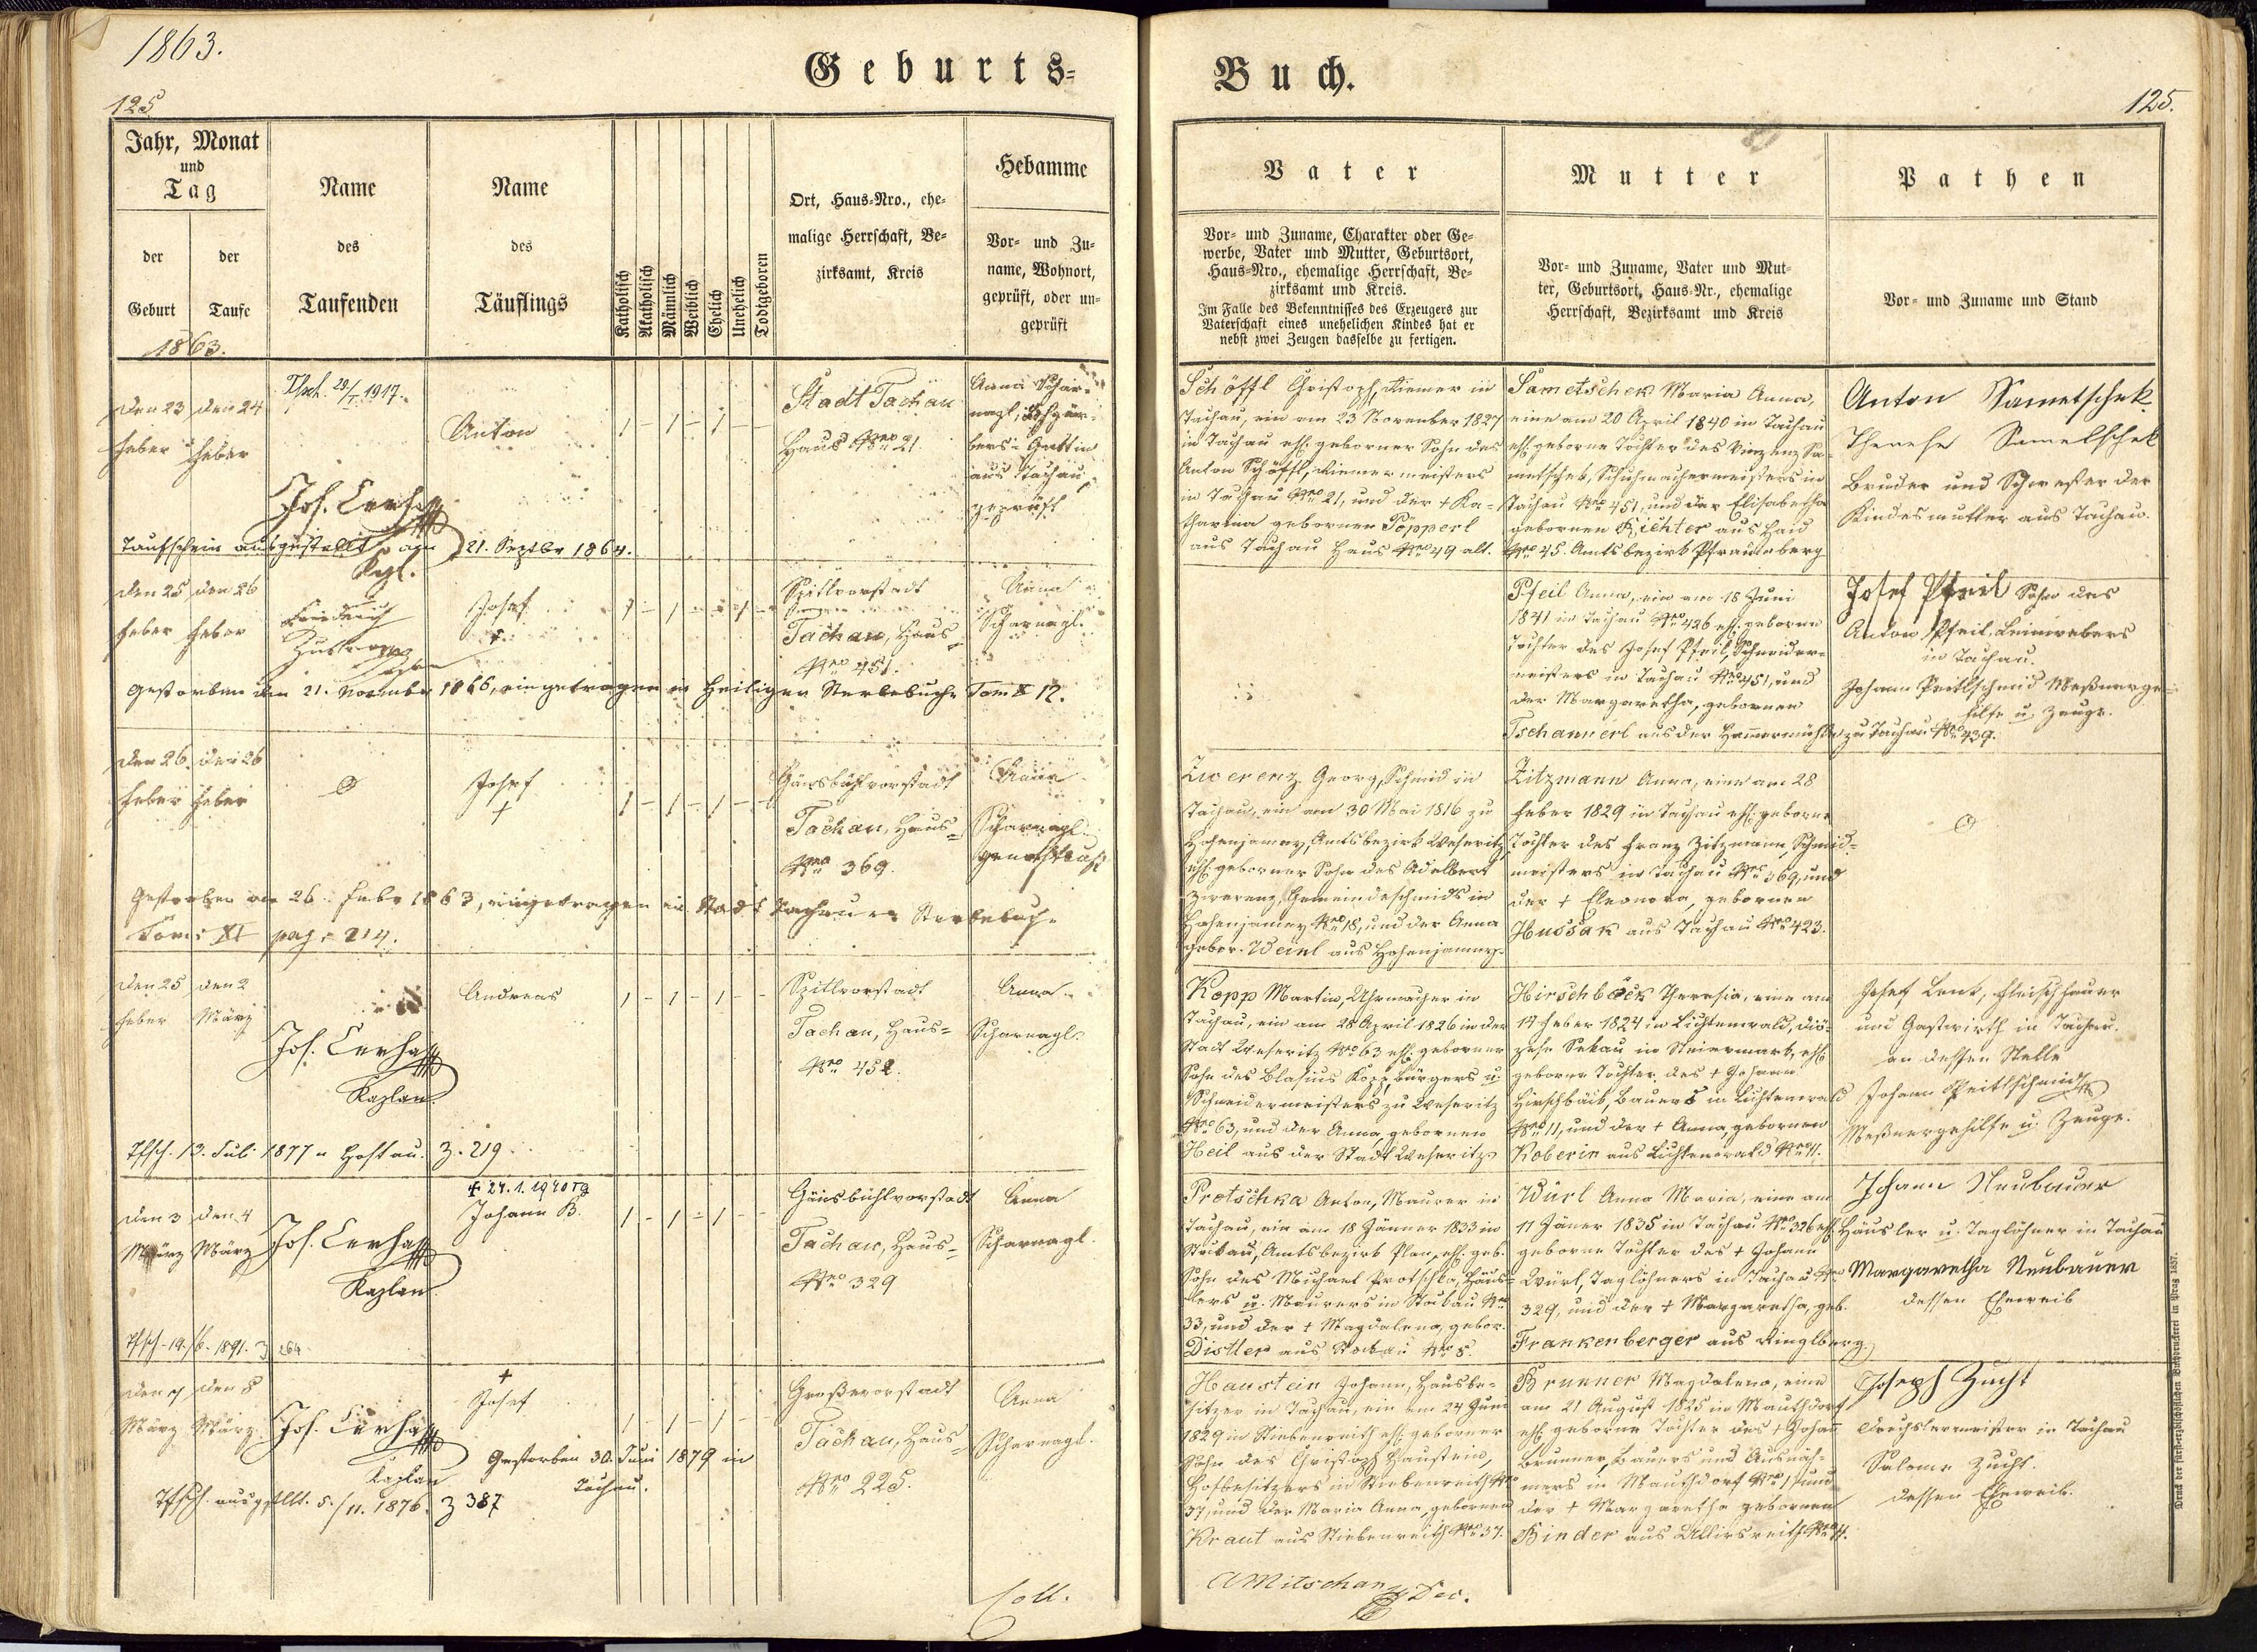 1863.
Geburts=
Buch.
125
125.
Jahr, Monat
und
Tag
der
Geburt
der
Taufe
1863.
Name
des
Taufenden
Name
des
Täuflings
Katholisch
Akatholisch
Männlich
Weiblich
Ehelich
Unehelich
Todtgeboren
Ort, Haus=Nro., ehe=
malige Herrschaft, Be=
zirksamt, Kreis
Hebamme
Vor= und Zu=
name, Wohnort,
geprüft, oder un=
geprüft
Vater
Vor= und Zuname, Charakter oder Ge=
werbe, Vater und Mutter, Geburtsort,
Haus=Nro., ehemalige Herrschaft, Be=
zirksamt und Kreis.
Im Falle des Bekenntnisses des Erzeugers zur
Vaterschaft eines unehelichen Kindes hat er
nebst zwei Zeugen dasselbe zu fertigen.
Mutter
Vor= und Zuname, Vater und Mut=
ter, Geburtsort, Haus=Nr., ehemalige
Herrschaft, Bezirksamt und Kreis
Pathen
Vor= und Zuname und Stand
den 23 den 24
Feber Feber
29./I. 1917.
Jos. Cerha
Anton
1 - 1 - 1 - -
Stadt Tachau
Haus Nro 21.
Anna Schar=
nagl,
Gattin
aus Tachau
geprüft
Taufschein ausgestellt am 21. Septbr 1864.
Schöffl Christoph, Riemer in
Tachau, ein am 23 November 1827
in Tachau ehl. geborner Sohn des
Anton Schöffl, Riemermeisters
in Tachau Nro 21, und der + Ka=
tharina gebornen Pöpperl
aus Tachau Haus Nro 49 alt.
Sametschek Maria Anna,
eine am 20 April 1840 in Tachau
ehl. geborne Tochter des Vinzenz Sa=
metschek, Schuhmachermeisters in
Tachau Nro 451, und der Elisabetha
gebornen Richter aus Haid
Nro 45. Amtsbezirk Pfraumberg
Anton Sametschek
Therese Sametschek
Bruder und Schwester der
Kindesmutter aus Tachau.
den 25 den 26
Feber Feber
Friedrich
Josef
Spitlvorstadt
Tachau, Haus=
Nro 451.
Anna
Scharnagl.
Gestorben den 21. November 1866, eingetragen im hiesigen Sterbebuche Tom X 12.
Pfeil Anna, ein am 18 Juni
1841 in Tachau Nro 426 ehl. geborne
Tochter des Josef Pfeil, Schneider=
meisters in Tachau Nro 451, und
der Margaretha, gebornen
Tschannerl aus der Hammermühle
Josef Pfeil Sohn des
Anton Pfeil, Leinwebers
in Tachau.
Johann Peitlschmid Meßnerge=
hilfe u. Zeuge.
zu Tachau Nro 439.
den 26. den 26
Feber Feber
Josef
+
1 - 1 - 1 - -
Gänsbühlvorstadt
Tachau, Haus=
Nro 369.
Anna
Scharnagl.
Gestorben am 26. Febr 1863, eingetragen im Stadt Tachauer Sterbebuche
Tom: XI pag: 214.
Zwerenz Georg, Schmid in
Tachau, ein am 30 Mai 1816 zu
Hohenjamny, Amtsbezirk Weseritz
ehl. geborner Sohn des Adelbert
Zwerenz, Gemeindeschmids in
Hohenjamny Nro 18, und der Anna
gebor. Weinl aus Hohenjamny.
Zitzmann Anna, eine am 28
Feber 1829 in Tachau ehl. geborne
Tochter des Franz Zitzmann, Schmid=
meisters in Tachau Nro 369, und
der + Eleonora, gebornen
Hussak aus Tachau Nro 423.
den 25 den 2
Feber März
Jos. Cerha
Kaplan.
Andreas
1 - 1 - 1 - -
Spitlvorstadt
Tachau, Haus=
Nro 452.
Anna
Scharnagl.
Tfsch. 13. Juli 1877 n Hostau. Z. 219.
Kopp Martin, Uhrmacher in
Tachau, ein am 28 April 1826 in der
Stadt Weseritz Nro 63 ehl. geborner
Sohn des Blasius Kopp, Bürgers u
Schneidermeisters zu Weseritz
Nro 63, und der Anna, gebornen
Heil aus der Stadt Weseritz
Hirschböck Theresia, eine am
14 Feber 1824 in Lichtenwald, Diö=
zese Sekau in Steiermark, ehl.
geborne Tochter des + Johann
Hirschböck, Bauers in Lichtenwald
Nro 11, und der + Anna, gebornen
Koberin aus Lichtenwald Nro 11.
Josef Lenk, Fleischhauer
und Gastwirth in Tachau.
an dessen Stelle
Johann Peitlschmidt
Meßnergehilfe u. Zeuge.
den 3 den 4
März März
Jos. Cerha
Kaplan.
+ 24.1.1940
Johann B.
1 - 1 - 1 - -
Gänsbühlvorstadt
Tachau, Haus=
Nro 329
Anna
Scharnagl.
Tfsch. 19./6. 1891. Z 264
Protschka Anton, Maurer in
Tachau, ein am 18 Jänner 1833 in
Stockau, Amtsbezirk Plan, ehl. geb.
Sohn des Michael Protschka, Häus=
lers u. Maurers in Stockau Nro
33, und der + Magdalena, gebor.
Distler aus Stockau Nro 5.
Würl Anna Maria, eine am
11 Jäner 1835 in Tachau Nro 326 ehl.
geborne Tochter des + Johann
Würl, Taglöhners in Tachau Nro
329, und der + Margaretha, geb.
Frankenberger aus Ringlberg.
Johann Neubauer
Häusler u. Taglöhner in Tachau
Margaretha Neubauer
dessen Eheweib
den 7 den 8
März März
Jos. Cerha
Kaplan
+
Josef
1 - 1 - 1 -
Gestorben 30. Juni 1879 in
Tachau.
Großevorstadt
Tachau, Haus=
Nro 225.
Anna
Scharnagl.
Tfsch. ausgstllt. 5./11. 1876. Z 387
Haustein Johann, Hausbe=
sitzer in Tachau, ein am 24 Juni
1829 in Stiebenreith ehl. geborner
Sohn des Christoph Haustein,
Hofbesitzers in Stiebenreith Nro
37, und der Maria Anna, gebornen
Kraut aus Stiebenreith Nro 37.
Brunner Magdalena, eine
am 21 August 1825 in Mauthdorf
ehl. geborne Tochter des + Johann
Brunner, Bauers und Ausnäh=
mers in Mauthdorf Nro 1, und
der + Margaretha gebornen
Binder aus Ullirsreith Nro 4.
Joseph Zucht
Drechslermeister in Tachau
Salome Zucht.
dessen Eheweib.
Coll.
AMitschan
Dec.
Druck der fürsterzbischöflichen Buchdruckerei in Prag 1857.